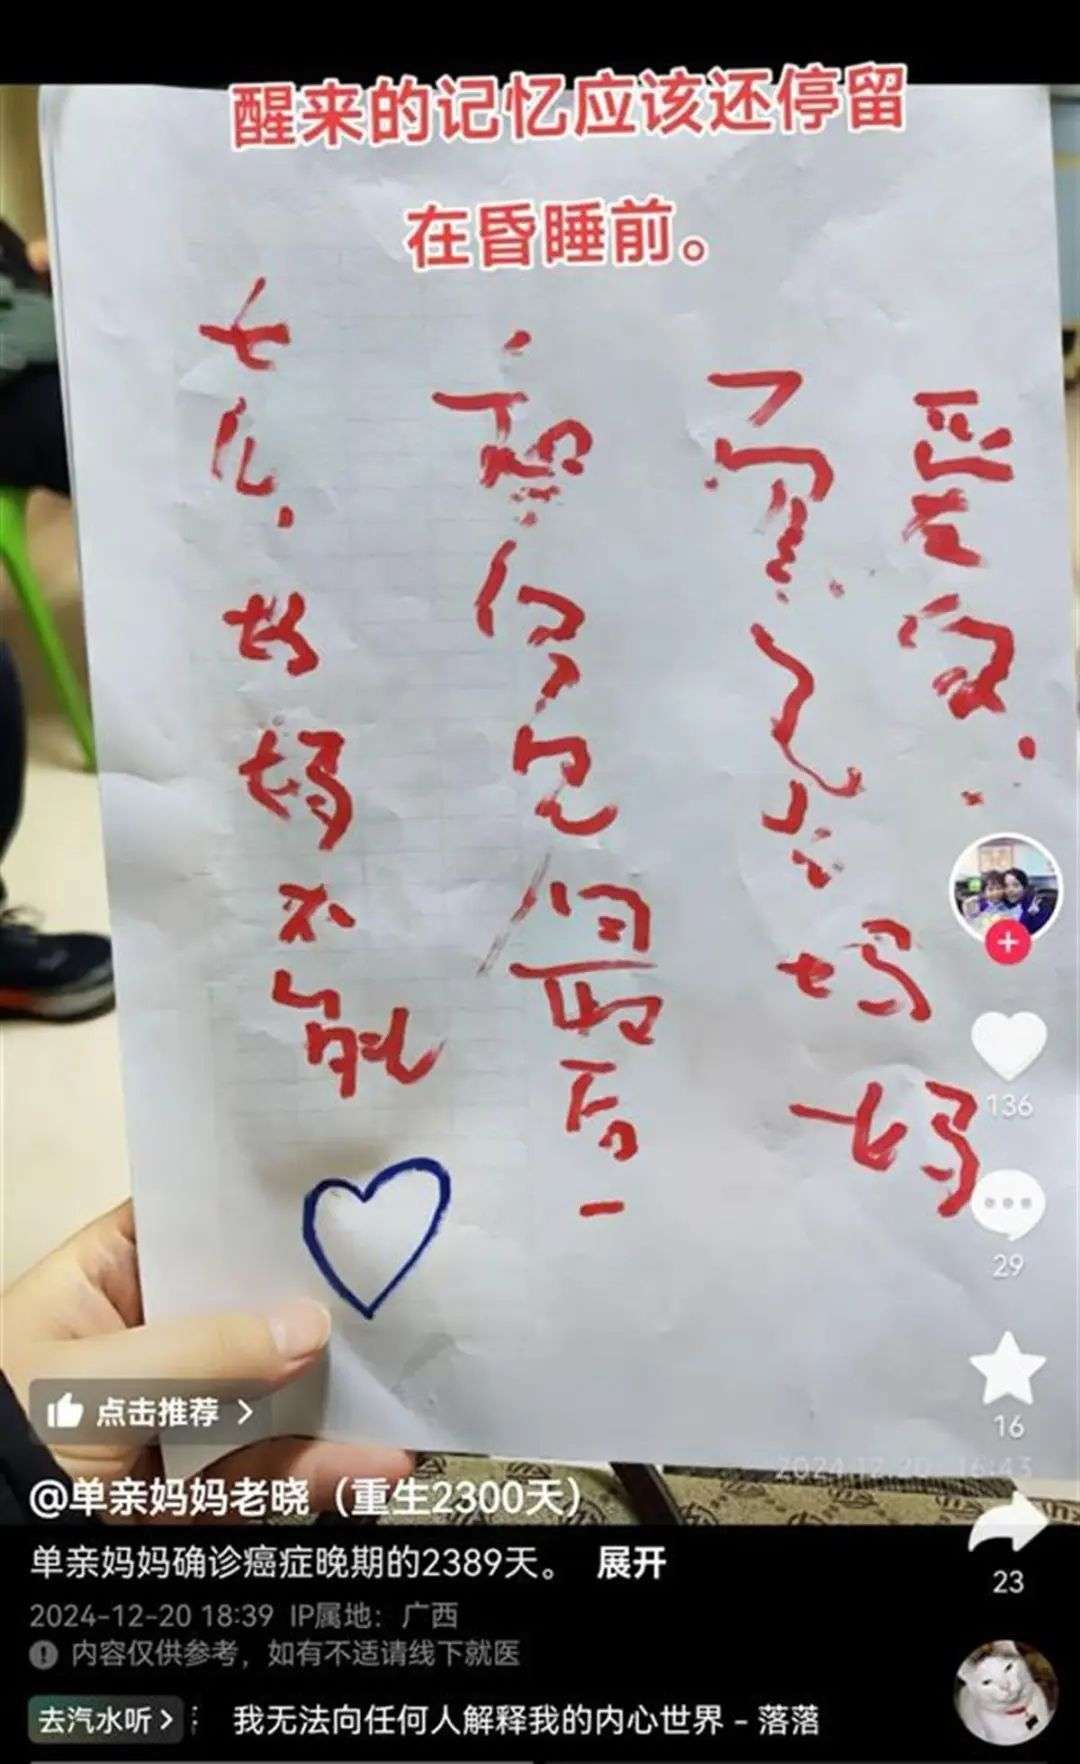 醒来的记忆应该还停留
在昏睡前。
女儿，妈妈不能
你见最后一
妈
爱你
妈
136
29
16
23
点击推荐 >
2024.12.20 16:43
@单亲妈妈老晓（重生2300天）
单亲妈妈确诊癌症晚期的2389天。 展开
2024-12-20 18:39 IP属地：广西
内容仅供参考，如有不适请线下就医
去汽水听 > 我无法向任何人解释我的内心世界 - 落落